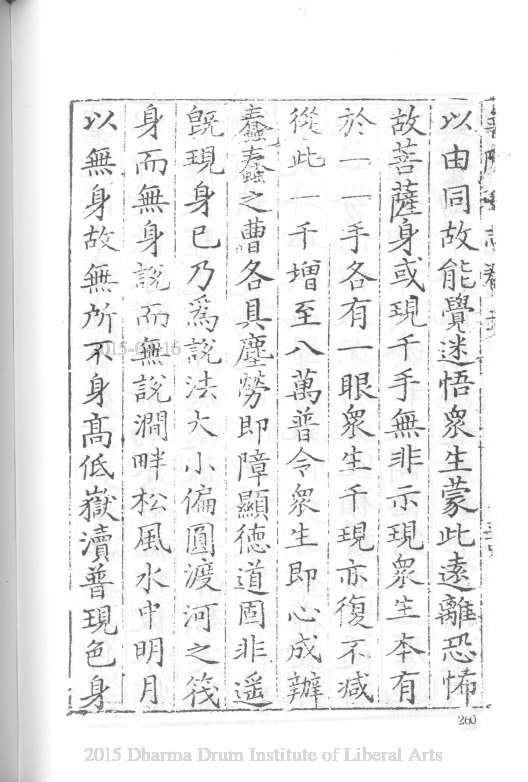 以由同故能覺迷悟衆生蒙此遠離恐怖
故菩薩身或現千手無非示現衆生本有
於一一手各有一眼衆生千現亦復不減
從此一千增至八萬普令衆生即心成辦
蠢蠢之曹各具塵勞即障顯德道固非遥
既現身已乃爲說法大小偏圓渡河之筏
身而無身說而無說澗畔松風水中明月
以無身故無所不身髙低嶽瀆普現色身
260
2015 Dharma Drum Institute of Liberal Arts